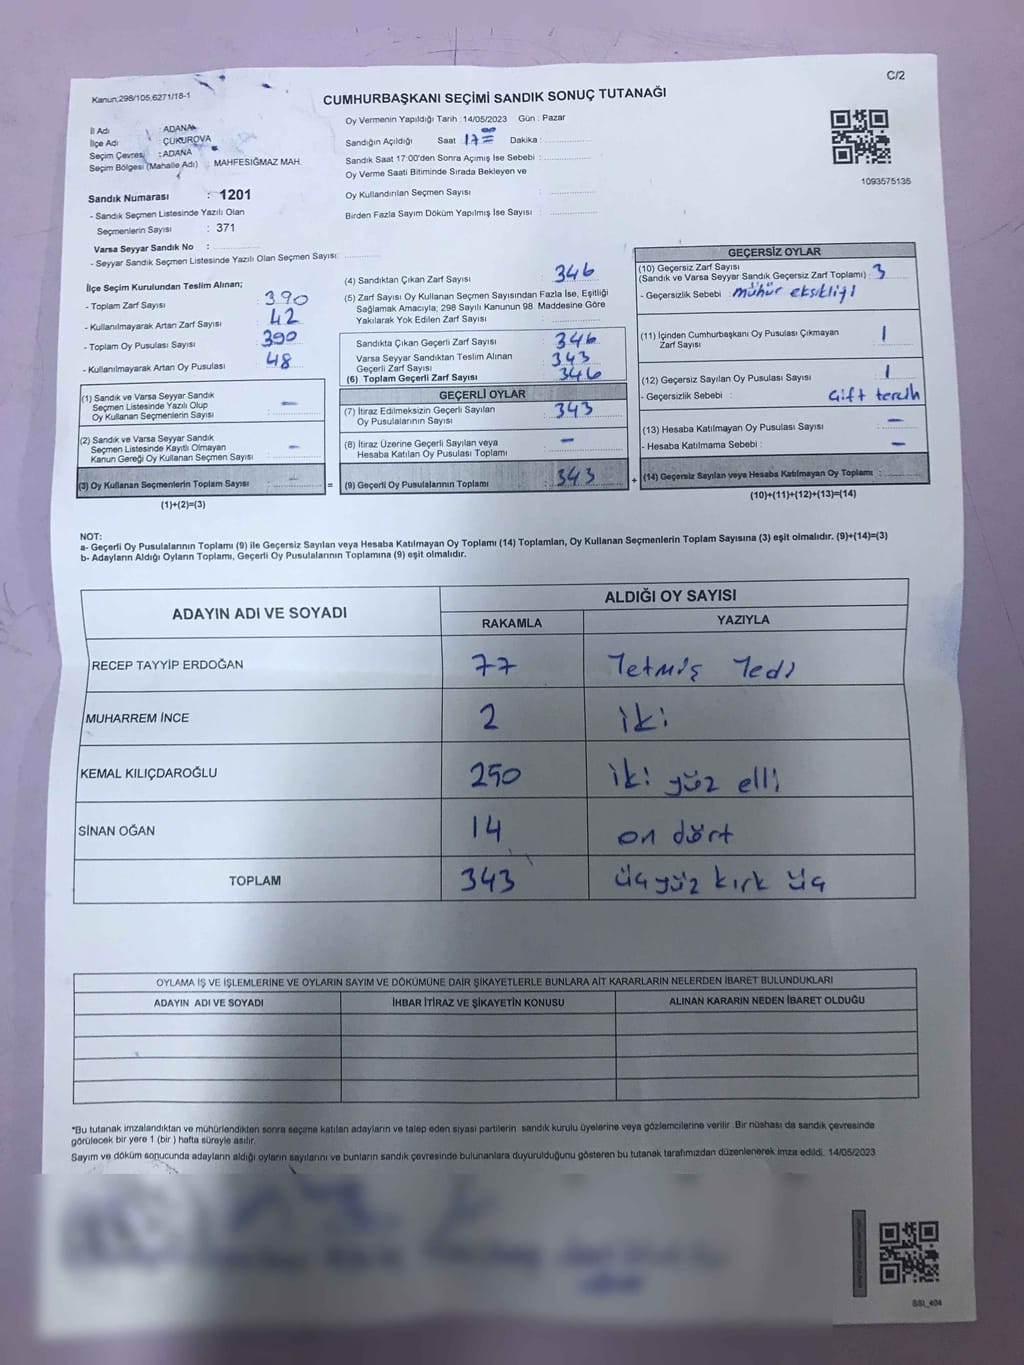 C/2
Kanun,298/105,6271/18-1
CUMHURBAŞKANI SEÇİMİ SANDIK SONUÇ TUTANAĞI
İl Adı : ADANA
İlçe Adı : ÇUKUROVA
Seçim Çevresi : ADANA
Seçim Bölgesi (Mahalle Adı) : MAHFESIĞMAZ MAH.
Sandık Numarası : 1201
- Sandık Seçmen Listesinde Yazılı Olan
Seçmenlerin Sayısı : 371
Varsa Seyyar Sandık No :
- Seyyar Sandık Seçmen Listesinde Yazılı Olan Seçmen Sayısı:
Oy Vermenin Yapıldığı Tarih : 14/05/2023 Gün : Pazar
Sandığın Açıldığı Saat 17 00 Dakika :
Sandık Saat 17:00'den Sonra Açımış İse Sebebi :
Oy Verme Saati Bitiminde Sırada Bekleyen ve
Oy Kullandırılan Seçmen Sayısı :
Birden Fazla Sayım Döküm Yapılmış İse Sayısı :
1093575135
İlçe Seçim Kurulundan Teslim Alınan;
- Toplam Zarf Sayısı : 390
- Kullanılmayarak Artan Zarf Sayısı : 42
- Toplam Oy Pusulası Sayısı : 390
- Kullanılmayarak Artan Oy Pusulası : 48
(1) Sandık ve Varsa Seyyar Sandık
Seçmen Listesinde Yazılı Olup
Oy Kullanan Seçmenlerin Sayısı : —
(2) Sandık ve Varsa Seyyar Sandık
Seçmen Listesinde Kayıtlı Olmayan
Kanun Gereği Oy Kullanan Seçmen Sayısı : —
(3) Oy Kullanan Seçmenlerin Toplam Sayısı : —
(1)+(2)=(3)
=
(4) Sandıktan Çıkan Zarf Sayısı : 346
(5) Zarf Sayısı Oy Kullanan Seçmen Sayısından Fazla İse, Eşitliği
Sağlamak Amacıyla; 298 Sayılı Kanunun 98. Maddesine Göre
Yakılarak Yok Edilen Zarf Sayısı :
Sandıkta Çıkan Geçerli Zarf Sayısı : 346
Varsa Seyyar Sandıktan Teslim Alınan
Geçerli Zarf Sayısı : 343
(6) Toplam Geçerli Zarf Sayısı : 346
GEÇERLİ OYLAR
(7) İtiraz Edilmeksizin Geçerli Sayılan
Oy Pusulalarının Sayısı : 343
(8) İtiraz Üzerine Geçerli Sayılan veya
Hesaba Katılan Oy Pusulası Toplamı : —
(9) Geçerli Oy Pusulalarının Toplamı : 343
+
GEÇERSİZ OYLAR
(10) Geçersiz Zarf Sayısı
(Sandık ve Varsa Seyyar Sandık Geçersiz Zarf Toplamı) : 3
- Geçersizlik Sebebi : mühür eksikliği
(11) İçinden Cumhurbaşkanı Oy Pusulası Çıkmayan
Zarf Sayısı : 1
(12) Geçersiz Sayılan Oy Pusulası Sayısı : 1
- Geçersizlik Sebebi : Çift tercih
(13) Hesaba Katılmayan Oy Pusulası Sayısı : —
- Hesaba Katılmama Sebebi : —
(14) Geçersiz Sayılan veya Hesaba Katılmayan Oy Toplamı :
(10)+(11)+(12)+(13)=(14)
NOT:
a- Geçerli Oy Pusulalarının Toplamı (9) ile Geçersiz Sayılan veya Hesaba Katılmayan Oy Toplamı (14) Toplamları, Oy Kullanan Seçmenlerin Toplam Sayısına (3) eşit olmalıdır. (9)+(14)=(3)
b- Adayların Aldığı Oyların Toplamı, Geçerli Oy Pusulalarının Toplamına (9) eşit olmalıdır.
ADAYIN ADI VE SOYADI
ALDIĞI OY SAYISI
RAKAMLA YAZIYLA
RECEP TAYYİP ERDOĞAN 77 Yetmiş Yedi
MUHARREM İNCE 2 iki
KEMAL KILIÇDAROĞLU 250 iki yüz elli
SİNAN OĞAN 14 on dört
TOPLAM 343 üçyüz kırk üç
OYLAMA İŞ VE İŞLEMLERİNE VE OYLARIN SAYIM VE DÖKÜMÜNE DAİR ŞİKAYETLERLE BUNLARA AİT KARARLARIN NELERDEN İBARET BULUNDUKLARI
ADAYIN ADI VE SOYADI İHBAR İTİRAZ VE ŞİKAYETİN KONUSU ALINAN KARARIN NEDEN İBARET OLDUĞU
*Bu tutanak imzalandıktan ve mühürlendikten sonra seçime katılan adayların ve talep eden siyasi partilerin sandık kurulu üyelerine veya gözlemcilerine verilir .Bir nüshası da sandık çevresinde
görülecek bir yere 1 (bir ) hafta süreyle asılır.
Sayım ve döküm sonucunda adayların aldığı oyların sayılarını ve bunların sandık çevresinde bulunanlara duyurulduğunu gösteren bu tutanak tarafımızdan düzenlenerek imza edildi. 14/05/2023
SSI_404